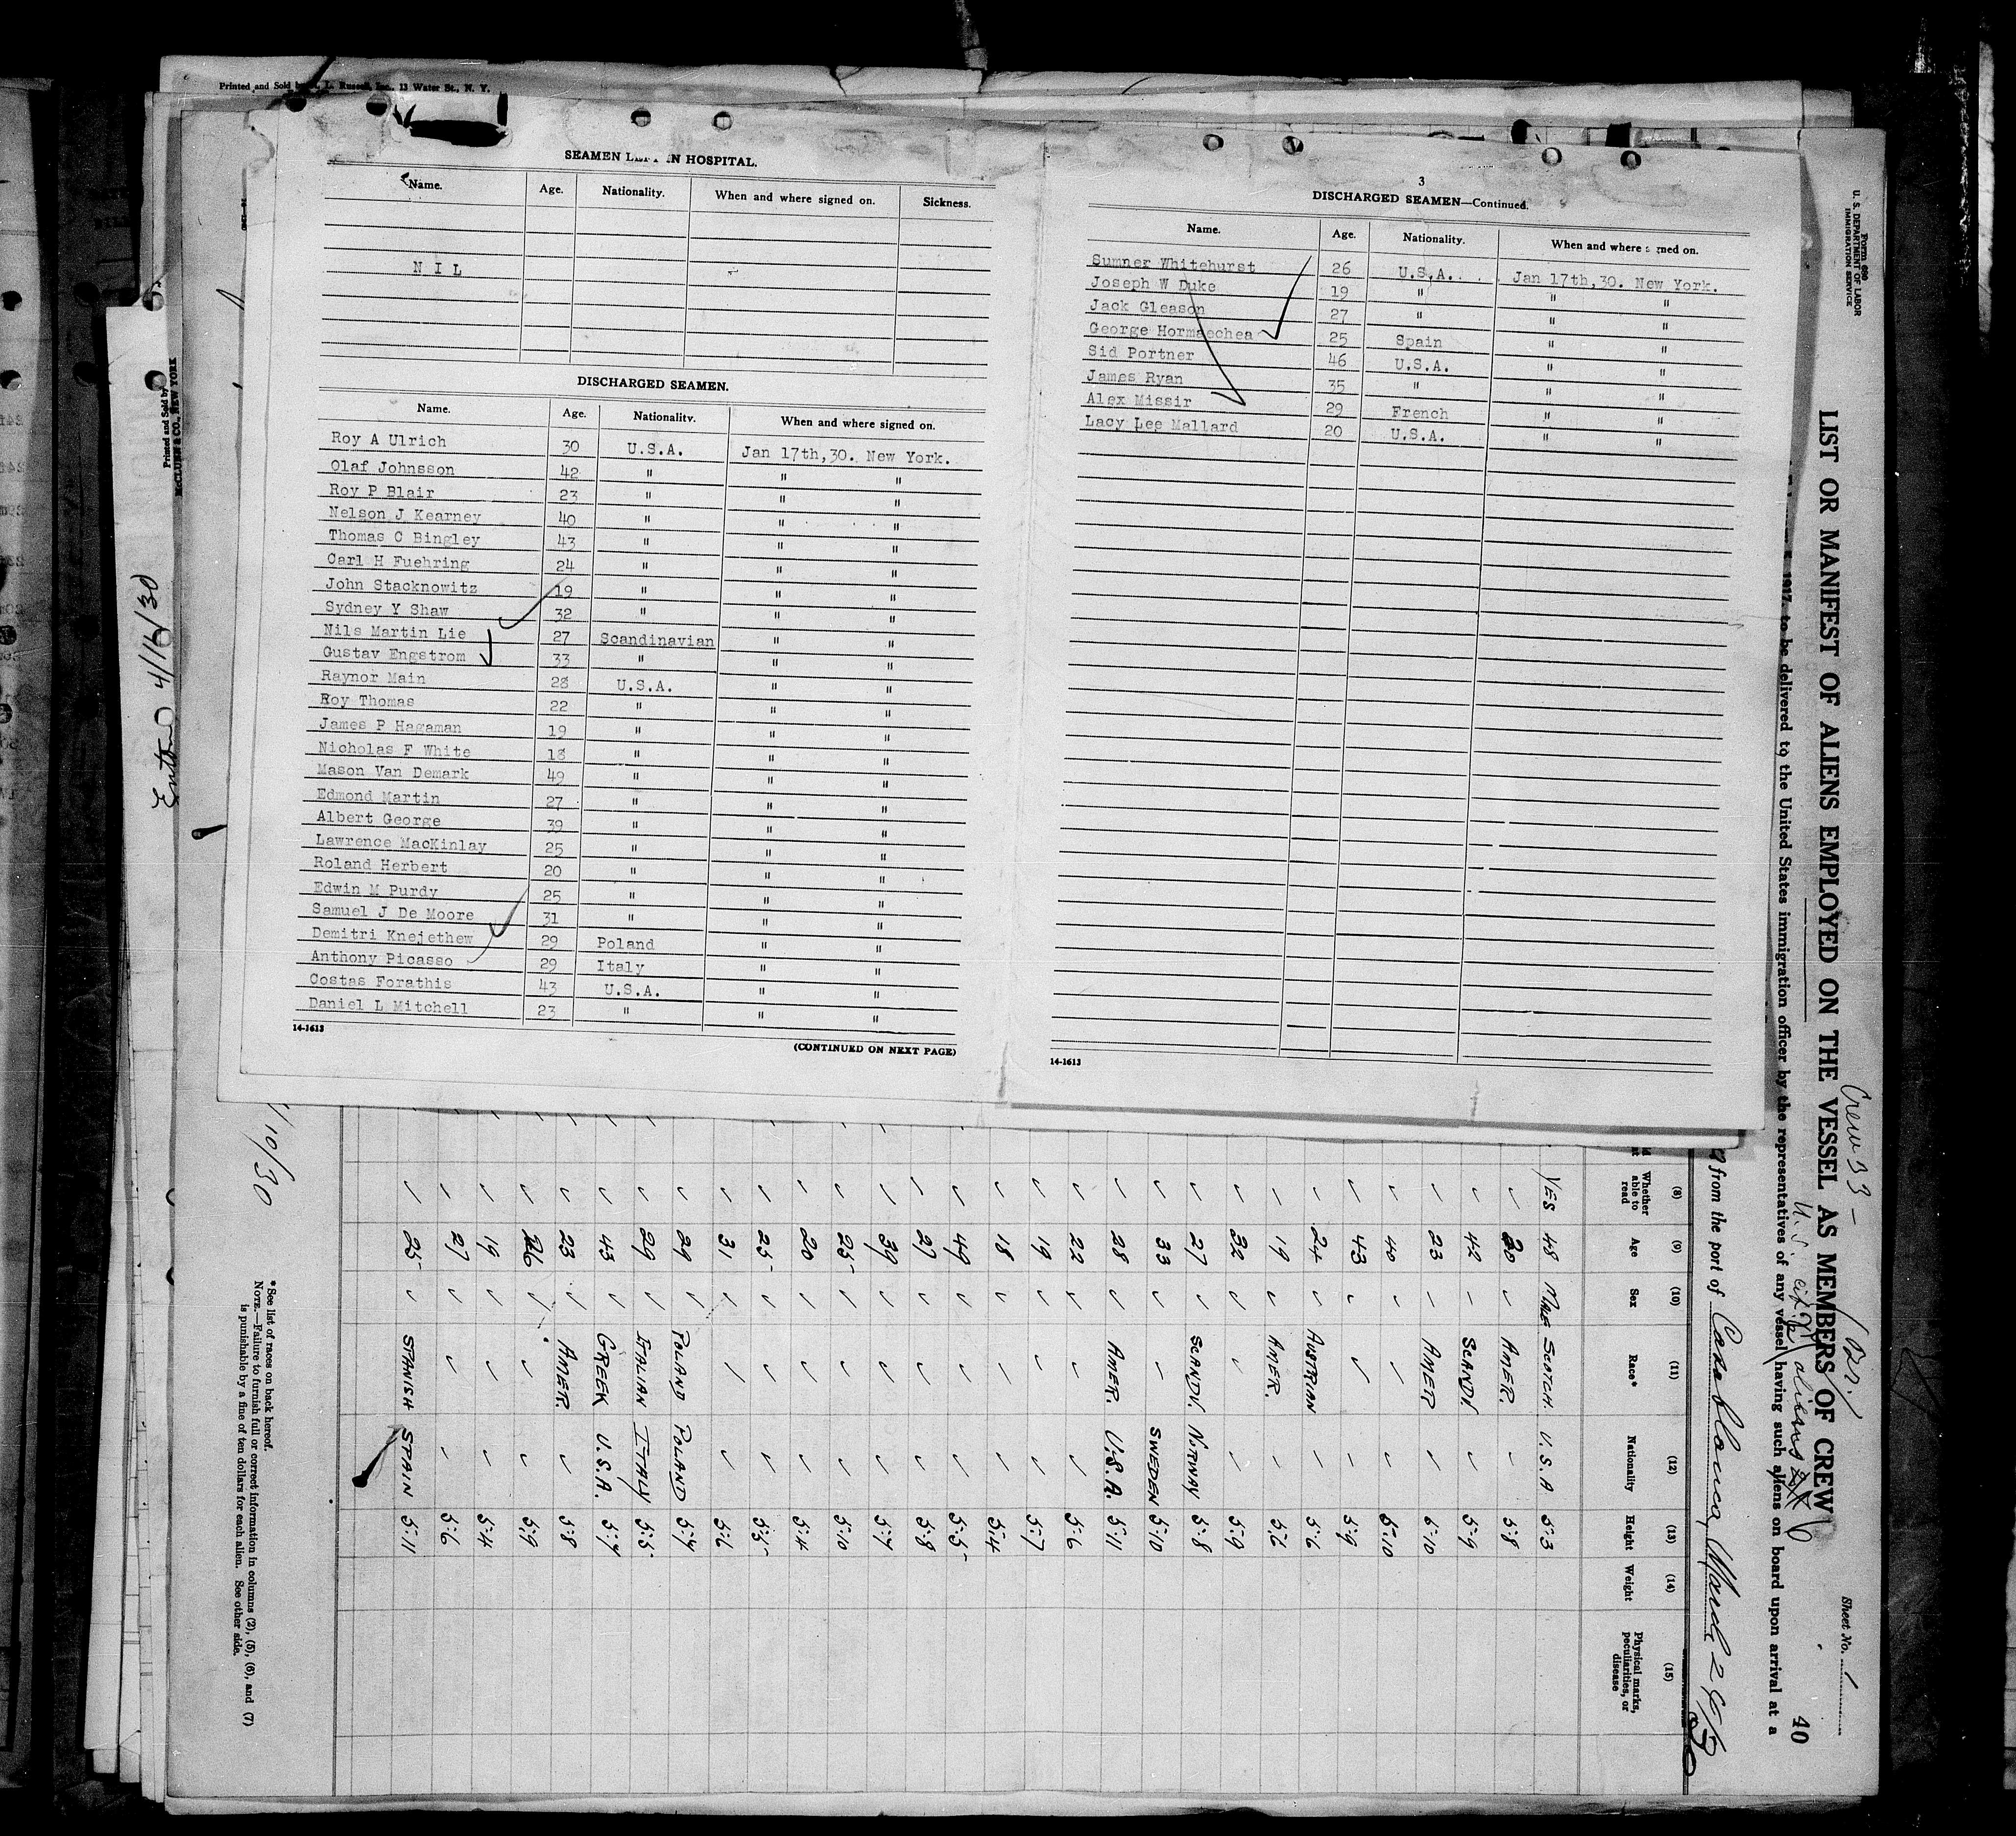 Printed and Sold by L. Russell, Inc., 13 Water St., N. Y.
SEAMEN LEFT IN HOSPITAL.
Name. Age. Nationality. When and where signed on. Sickness.
N I L
DISCHARGED SEAMEN.
Name. Age. Nationality. When and where signed on.
Roy A Ulrich 30 U.S.A. Jan 17th,30. New York.
Olaf Johnsson 42 " " "
Roy P Blair 23 " " "
Nelson J Kearney 40 " " "
Thomas C Bingley 43 " " "
Carl H Fuehring 24 " " "
John Stacknowitz 19 " " "
Sydney Y Shaw 32 " " "
Nils Martin Lie 27 Scandinavian " "
Gustav Engstrom 33 " " "
Raynor Main 28 U.S.A. " "
Roy Thomas 22 " " "
James P Hagaman 19 " " "
Nicholas F White 18 " " "
Mason Van Demark 49 " " "
Edmond Martin 27 " " "
Albert George 39 " " "
Lawrence MacKinlay 25 " " "
Roland Herbert 20 " " "
Edwin M Purdy 25 " " "
Samuel J De Moore 31 " " "
Demitri Knejethew 29 Poland " "
Anthony Picasso 29 Italy " "
Costas Forathis 43 U.S.A. " "
Daniel L Mitchell 23 " " "
14-1613
(CONTINUED ON NEXT PAGE)
3
DISCHARGED SEAMEN—Continued.
Name. Age. Nationality. When and where signed on.
Sumner Whitehurst 26 U.S.A. Jan 17th,30. New York.
Joseph W Duke 19 " " "
Jack Gleason 27 " " "
George Hormaechea 25 Spain " "
Sid Portner 46 U.S.A. " "
James Ryan 35 " " "
Alex Missir 29 French " "
Lacy Lee Mallard 20 U.S.A. " "
14-1613
Printed and Sold by
McCLURE & CO., NEW YORK
4/16/30
10/30
Form 680
U. S. DEPARTMENT OF LABOR
IMMIGRATION SERVICE
Sheet No. 1
40
Crew 33 -
LIST OR MANIFEST OF ALIENS EMPLOYED ON THE VESSEL AS MEMBERS OF CREW
1917, to be delivered to the United States immigration officer by the representatives of any vessel having such aliens on board upon arrival at a
from the port of Casablanca, March 29/30
(8) Whether able to read (9) Age (10) Sex (11) Race* (12) Nationality (13) Height (14) Weight (15) Physical marks, peculiarities, or disease
YES 48 MALE SCOTCH. U.S.A 5:3
✓ 30 ✓ AMER. ✓ 5:8
✓ 42 ✓ SCANDI. ✓ 5:9
✓ 23 ✓ AMER ✓ 5:10
✓ 40 ✓ ✓ ✓ 5:10
✓ 43 ✓ ✓ ✓ 5:9
✓ 24 ✓ AUSTRIAN ✓ 5:6
✓ 19 ✓ AMER. ✓ 5:6
✓ 32 ✓ ✓ ✓ 5:9
✓ 27 ✓ SCANDI. NORWAY 5:8
✓ 33 ✓ ✓ SWEDEN 5:10
✓ 28 ✓ AMER. U.S.A. 5:11
✓ 22 ✓ ✓ ✓ 5:6
✓ 19 ✓ ✓ ✓ 5:7
✓ 18 ✓ ✓ ✓ 5:4
✓ 49 ✓ ✓ ✓ 5:5
✓ 27 ✓ ✓ ✓ 5:8
✓ 39 ✓ ✓ ✓ 5:7
✓ 25 ✓ ✓ ✓ 5:10
✓ 20 ✓ ✓ ✓ 5:4
✓ 25 ✓ ✓ ✓ 5:5
✓ 31 ✓ ✓ ✓ 5:6
✓ 29 ✓ POLAND POLAND 5:4
✓ 29 ✓ ITALIAN ITALY 5:5
✓ 43 ✓ GREEK U.S.A. 5:4
✓ 23 ✓ AMER. ✓ 5:8
✓ 26 ✓ ✓ ✓ 5:9
✓ 19 ✓ ✓ ✓ 5:4
✓ 27 ✓ ✓ ✓ 5:6
✓ 25 ✓ SPANISH SPAIN 5:11
*See list of races on back hereof.
NOTE.—Failure to furnish full or correct information in columns (2), (5), (6), and (7)
is punishable by a fine of ten dollars for each alien. See other side.